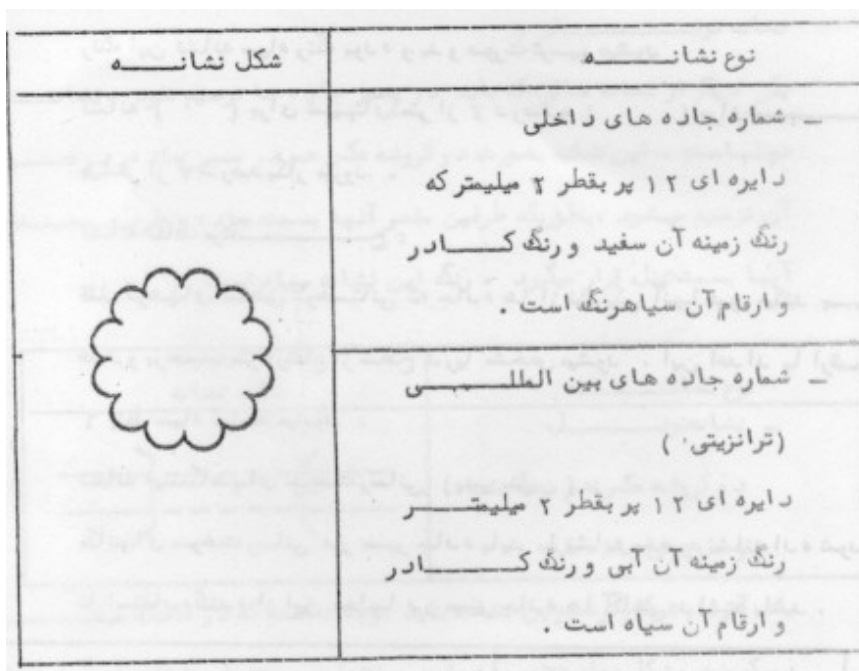 نوع نشانه
شکل نشانه
– شماره جاده های داخلی
دایره ای ۱۲ پر بقطر ۲ میلیمتر که
رنگ زمینه آن سفید و رنگ کادر
و ارقام آن سیاهرنگ است .
– شماره جاده های بین المللی
(ترانزیتی )
دایره ای ۱۲ پر بقطر ۲ میلیمتر
رنگ زمینه آن آبی و رنگ کادر
و ارقام آن سیاه است .